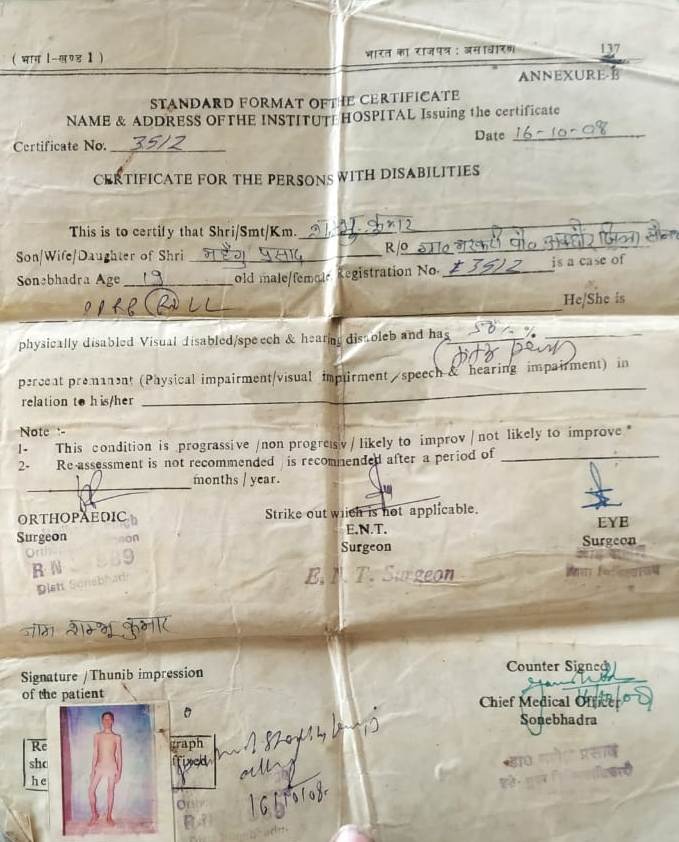 ( भाग 1-खण्ड 1 ) भारत का राजपत्र : असाधारण 137
ANNEXURE-B
STANDARD FORMAT OF THE CERTIFICATE
NAME & ADDRESS OF THE INSTITUTE HOSPITAL Issuing the certificate
Certificate No. 3512 Date 16-10-08
CERTIFICATE FOR THE PERSONS WITH DISABILITIES
This is to certify that Shri/Smt/Km. शम्भू कुमार
Son/Wife/Daughter of Shri महेंगू प्रसाद R/o ग्रा० पो० जिला
Sonebhadra Age 19 old male/female Registration No. 3512 is a case of
PPRB RLL He/She is
physically disabled Visual disabled/speech & hearing disaoleb and has 50% %
percent premanant (Physical impairment/visual impairment/speech & hearing impairment) in
relation to his/her
Note :-
1- This condition is prograssive /non progresiv / likely to improv / not likely to improve.*
2- Re-assessment is not recommended / is recommended after a period of
months / year.
Strike out which is not applicable.
ORTHOPAEDIC
Surgeon
E.N.T.
Surgeon
EYE
Surgeon
R N 989
Distt Sonebhadra
E. N. T. Surgeon
नाम शम्भू कुमार
Signature /Thunib impression
of the patient
Counter Signed
Chief Medical Officer
Sonebhadra
16/10/08
डा० प्रसाद
16/10/08